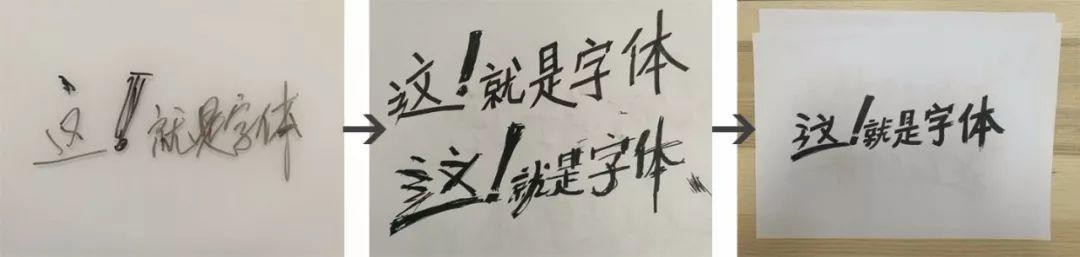 这！就是字体
这！就是字体
这！就是字体
这！就是字体